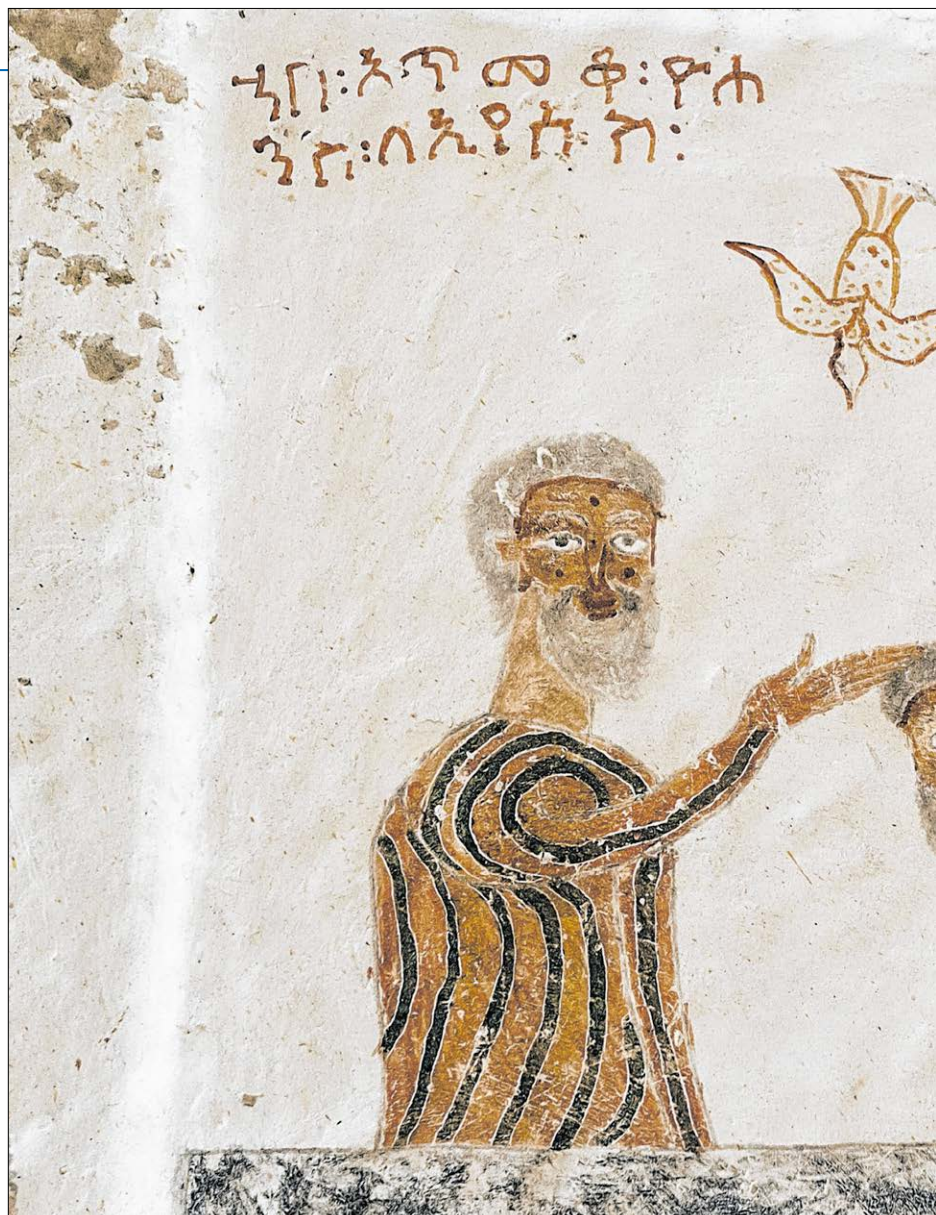 ኀበ፡አጥመቆ፡ዮሐ
ንስ፡ለኢየሱስ፡